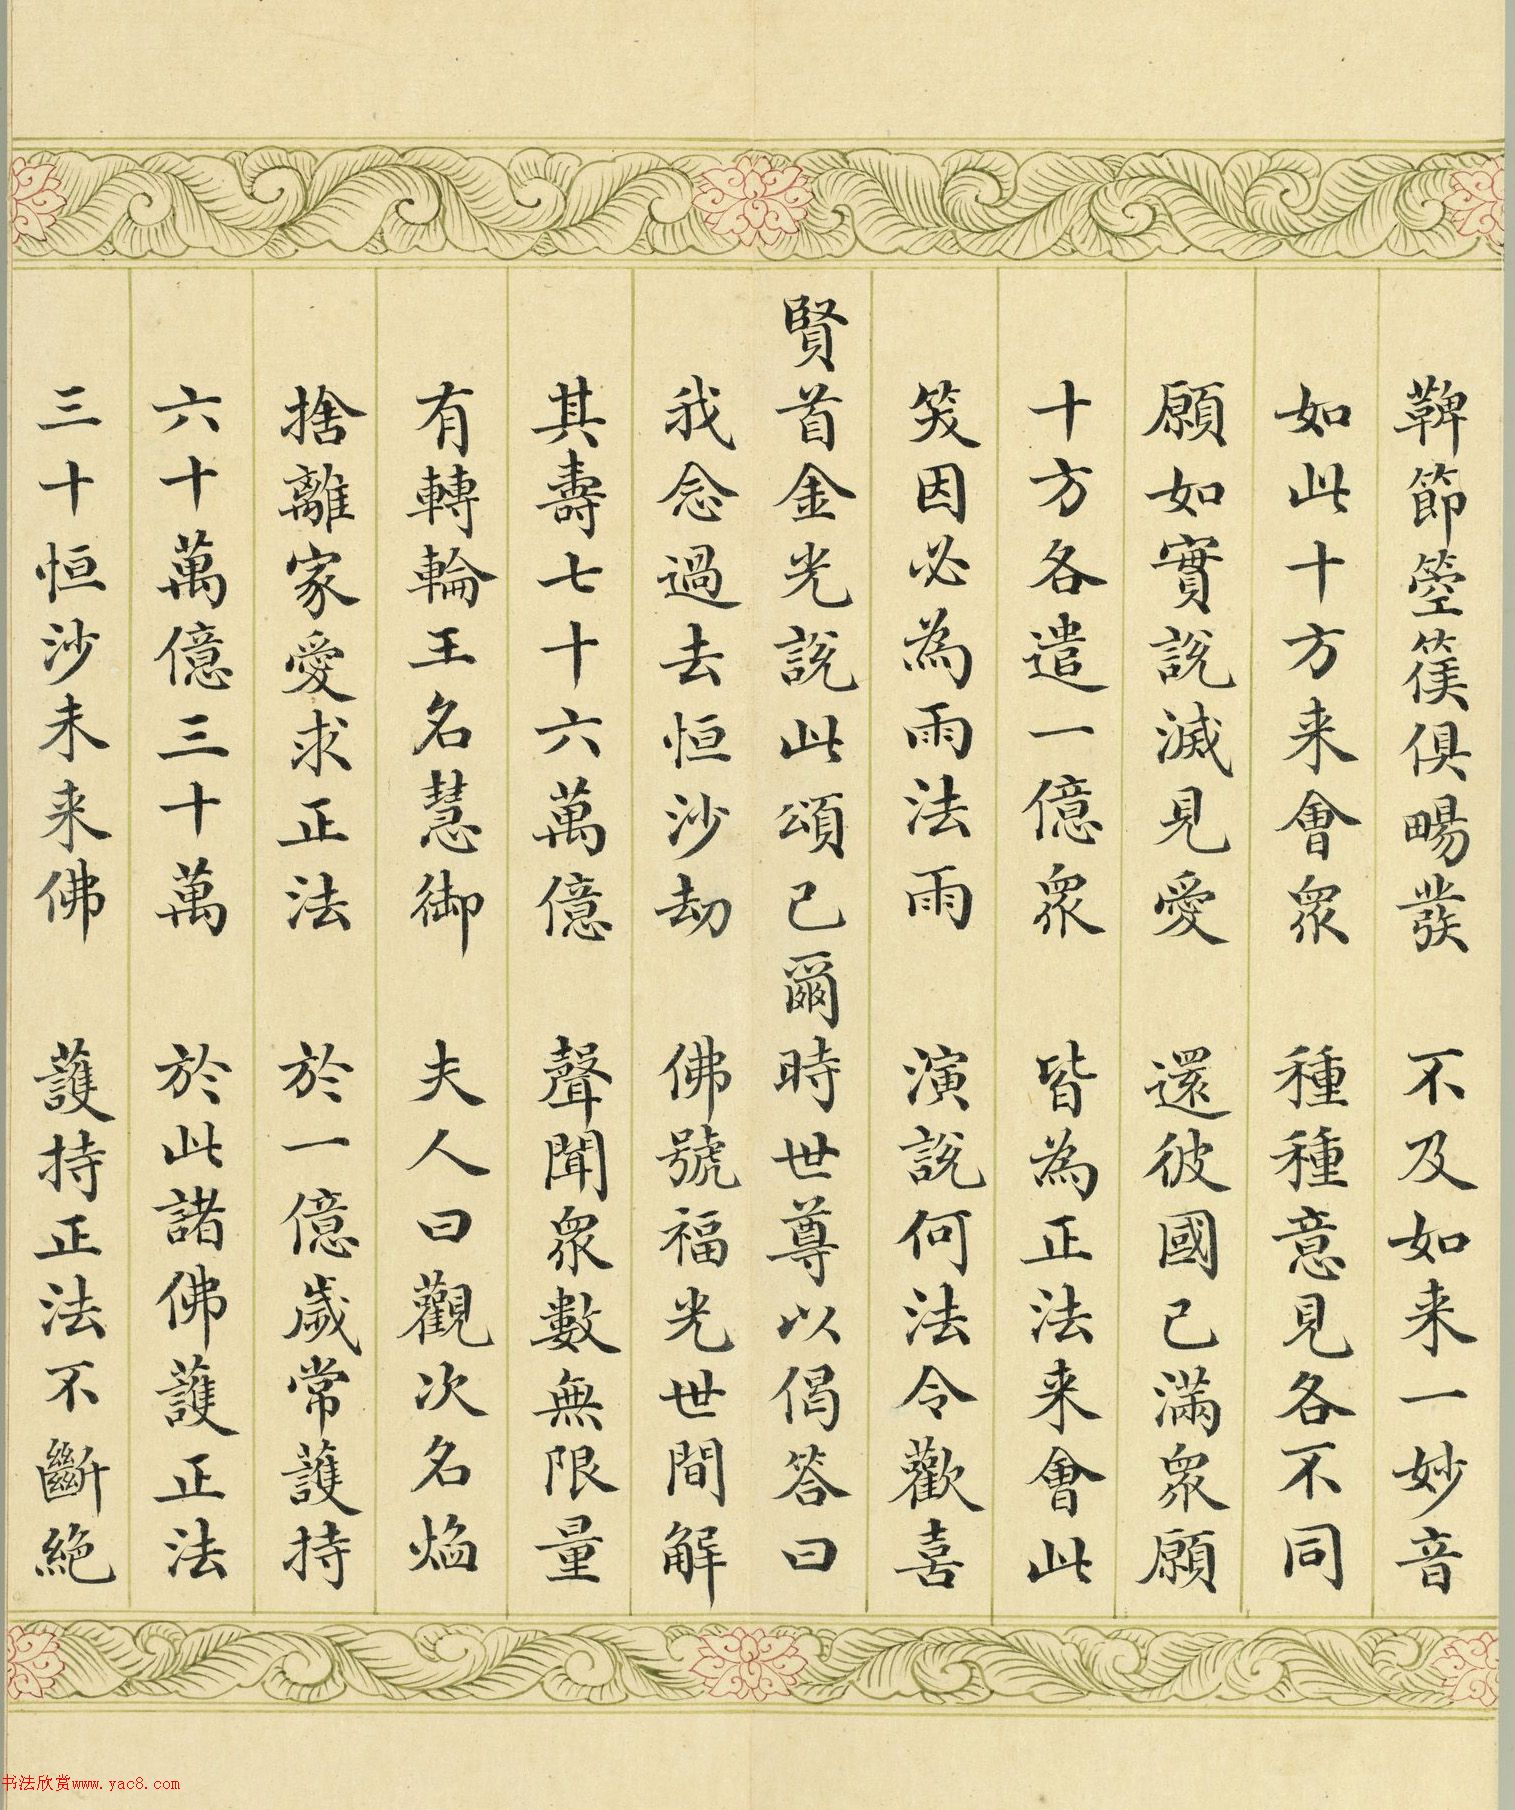 鞞節箜篌俱暢發　不及如来一妙音
如此十方来會衆　種種意見各不同
願如實說滅見愛　還彼國已滿衆願
十方各遣一億衆　皆為正法来會此
笑因必為雨法雨　演說何法令歡喜
賢首金光說此頌已爾時世尊以偈答曰
我念過去恒沙劫　佛號福光世間解
其壽七十六萬億　聲聞衆數無限量
有轉輪王名慧御　夫人曰觀次名焔
捨離家愛求正法　於一億歲常護持
六十萬億三十萬　於此諸佛護正法
三十恒沙未来佛　護持正法不斷絕
书法欣赏www.yac8.com